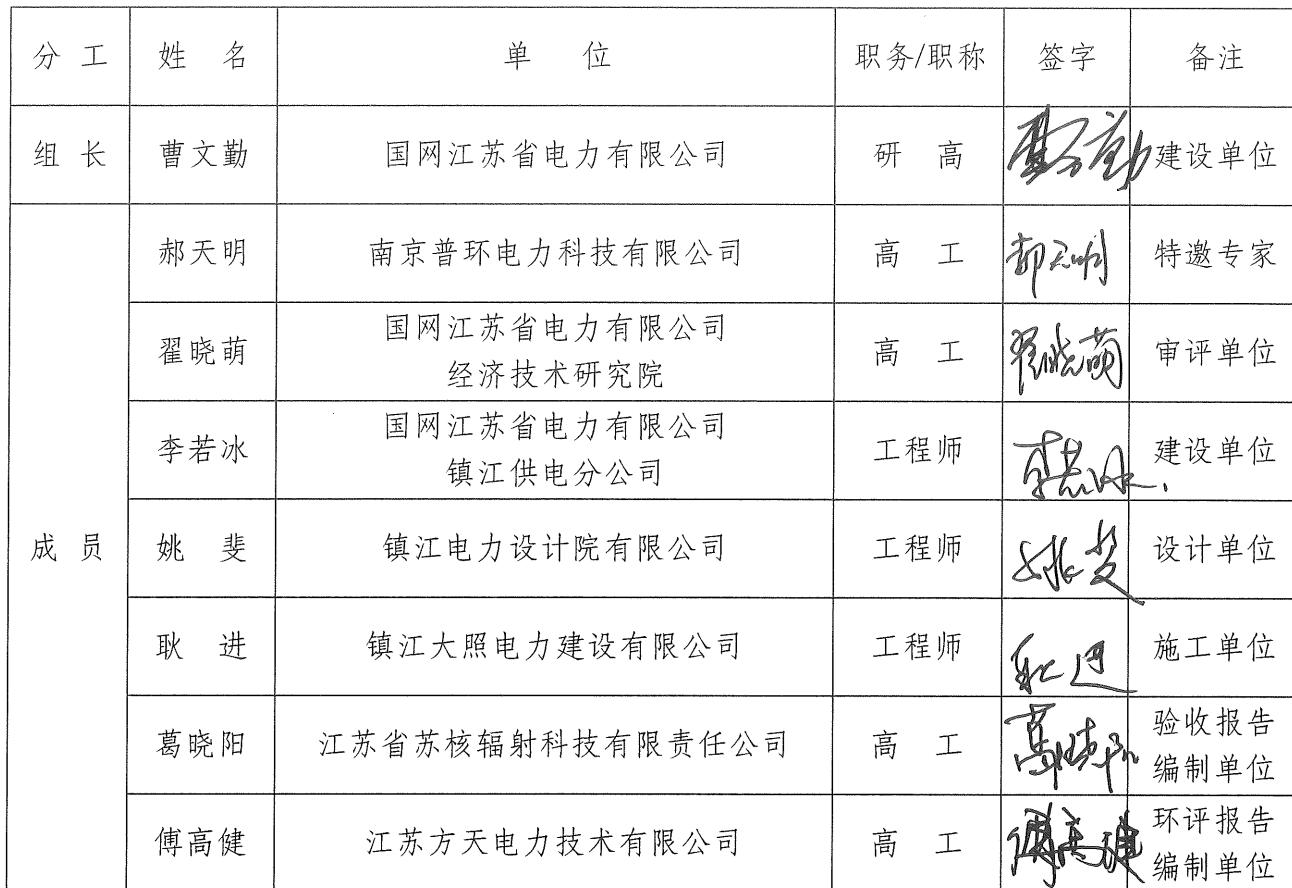 分 工 姓 名 单 位 职务/职称 签字 备注
组 长 曹文勤 国网江苏省电力有限公司 研 高 曹文勤 建设单位
郝天明 南京普环电力科技有限公司 高 工 郝天明 特邀专家
翟晓萌 国网江苏省电力有限公司
经济技术研究院 高 工 翟晓萌 审评单位
李若冰 国网江苏省电力有限公司
镇江供电分公司 工程师 李若冰 建设单位
成 员 姚 斐 镇江电力设计院有限公司 工程师 姚斐 设计单位
耿 进 镇江大照电力建设有限公司 工程师 耿进 施工单位
葛晓阳 江苏省苏核辐射科技有限责任公司 高 工 葛晓阳 验收报告
编制单位
傅高健 江苏方天电力技术有限公司 高 工 傅高健 环评报告
编制单位